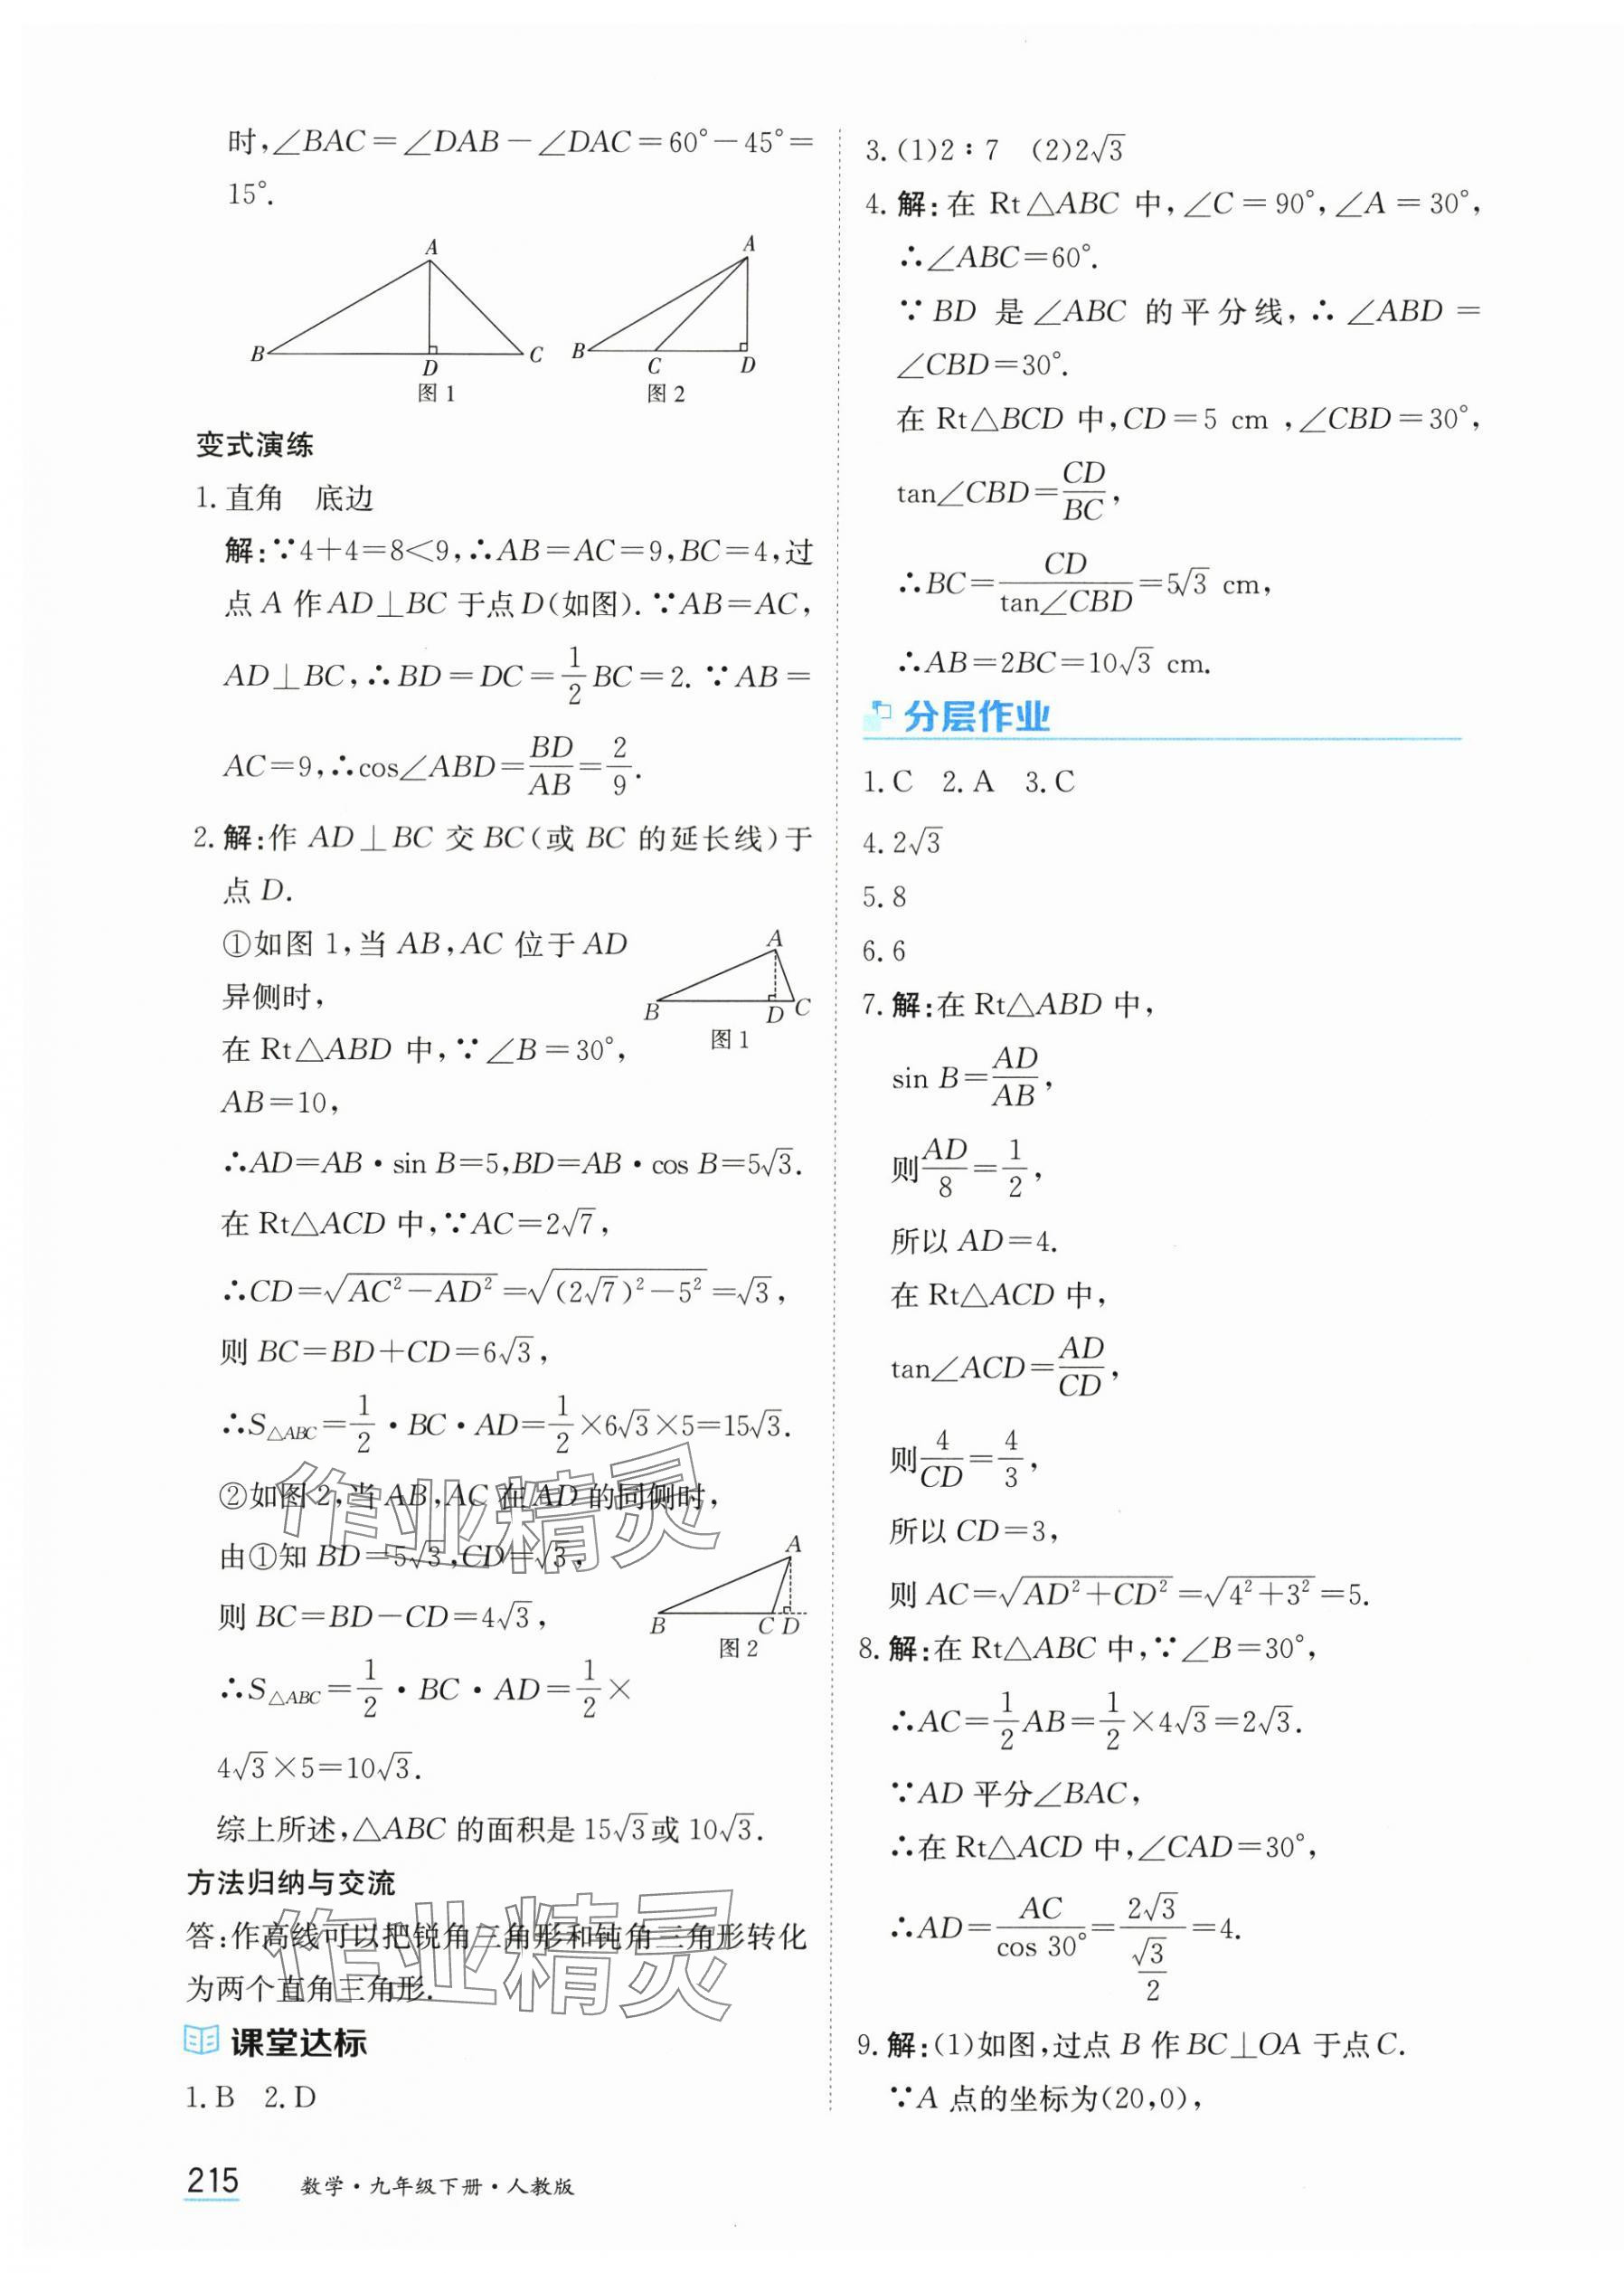 时,∠BAC=∠DAB-∠DAC=60°-45°=
15°.
A
B
D
C
图1
A
B
C
D
图2
变式演练
1.直角 底边
解:∵4+4=8<9,∴AB=AC=9,BC=4,过
点A作AD⊥BC于点D(如图).∵AB=AC,
AD⊥BC,∴BD=DC=1/2BC=2.∵AB=
AC=9,∴cos∠ABD=BD/AB=2/9.
2.解:作AD⊥BC交BC(或BC的延长线)于
点D.
①如图1,当AB,AC位于AD
异侧时,
在Rt△ABD中,∵∠B=30°,
AB=10,
A
B
D
C
图1
∴AD=AB·sin B=5,BD=AB·cos B=5√3.
在Rt△ACD中,∵AC=2√7,
∴CD=√(AC²-AD²)=√((2√7)²-5²)=√3,
则BC=BD+CD=6√3,
∴S△ABC=1/2·BC·AD=1/2×6√3×5=15√3.
②如图2,当AB,AC在AD的同侧时,
由①知BD=5√3,CD=√3,
则BC=BD-CD=4√3,
∴S△ABC=1/2·BC·AD=1/2×
A
B
C
D
图2
4√3×5=10√3.
综上所述,△ABC的面积是15√3或10√3.
方法归纳与交流
答:作高线可以把锐角三角形和钝角三角形转化
为两个直角三角形.
课堂达标
1.B 2.D
3.(1)2∶7 (2)2√3
4.解:在Rt△ABC中,∠C=90°,∠A=30°,
∴∠ABC=60°.
∵BD是∠ABC的平分线,∴∠ABD=
∠CBD=30°.
在Rt△BCD中,CD=5 cm,∠CBD=30°,
tan∠CBD=CD/BC,
∴BC=CD/tan∠CBD=5√3 cm,
∴AB=2BC=10√3 cm.
分层作业
1.C 2.A 3.C
4.2√3
5.8
6.6
7.解:在Rt△ABD中,
sin B=AD/AB,
则AD/8=1/2,
所以AD=4.
在Rt△ACD中,
tan∠ACD=AD/CD,
则4/CD=4/3,
所以CD=3,
则AC=√(AD²+CD²)=√(4²+3²)=5.
8.解:在Rt△ABC中,∵∠B=30°,
∴AC=1/2AB=1/2×4√3=2√3.
∵AD平分∠BAC,
∴在Rt△ACD中,∠CAD=30°,
∴AD=AC/cos 30°=2√3/(√3/2)=4.
9.解:(1)如图,过点B作BC⊥OA于点C.
∵A点的坐标为(20,0),
215 数学·九年级下册·人教版
作业精灵
作业精灵